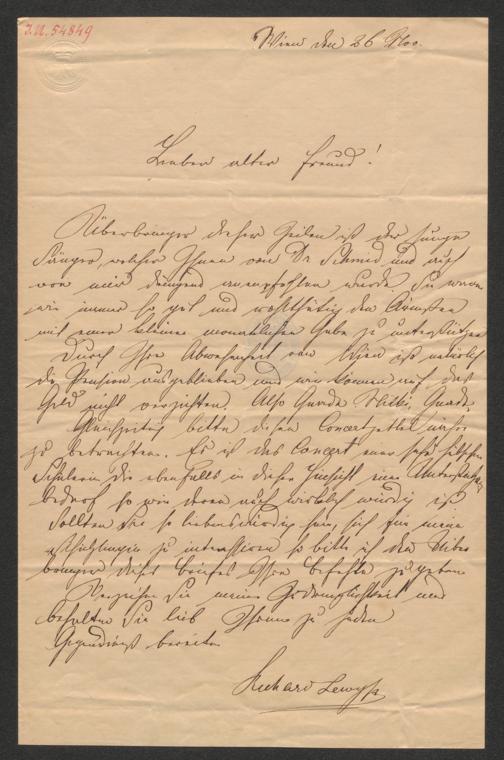 J.N. 54849
Wien den 26 Nov.
Lieber alter Freund!
Überbringer dieser Zeilen ist der junge
Sänger, welcher Ihnen von Dr Schmid und auch
von mir dringend anempfohlen wurde Sie waren
wie immer so gut und wohlthätig den Ärmsten
mit einer kleinen monatlichen Gabe zu unterstützen
Durch Ihre Abwesenheit von Wien ist natürlich
die Pension ausgeblieben und wir können auf das
Geld nicht verzichten. Also Gnade
Gleichzeitig bitte diesen Concertzettel
zu betrachten. Es ist das Concert einer sehr hübschen
Schülerin die ebenfalls in dieser Hinsicht einer
bedarf so wie deren auch wirklich würdig ist
Sollten Sie so liebenswürdig sein, sich für meine
zu interessiren so bitte ich den Über
bringer dieses Briefes Ihre Befehle zu geben
Verzeihen Sie meine Zudringlichkeit und
behalten Sie lieb Ihren zu jedem
Gegendienst bereiten
Richard Lewy